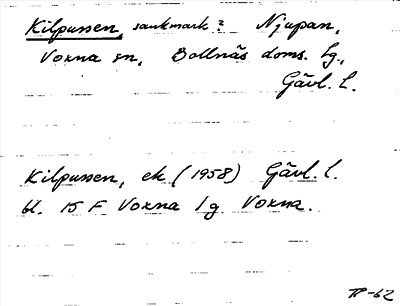 Kilpussen, sankmark : Njupan,
Voxna sn, Bollnäs doms. hg.,
Gävl. L.
Kilpussen, ek (1958) Gävl. l.
bl. 15 F Voxna lg Voxna.
TP-62